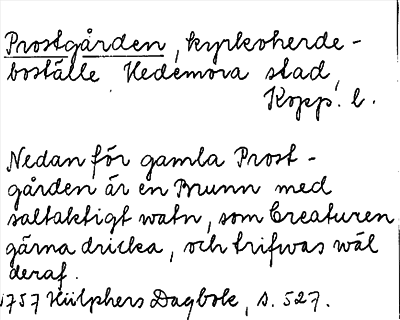 Prostgården, kyrkoherde-
boställe Hedemora stad,
Kopp. l.
Nedan för gamla Prost-
gården är en Brunn med
saltaktigt watn, som Creaturen
gärna dricka, och trifwas wäl
deraf.
1757 Hülphers Dagbok, s. 527.